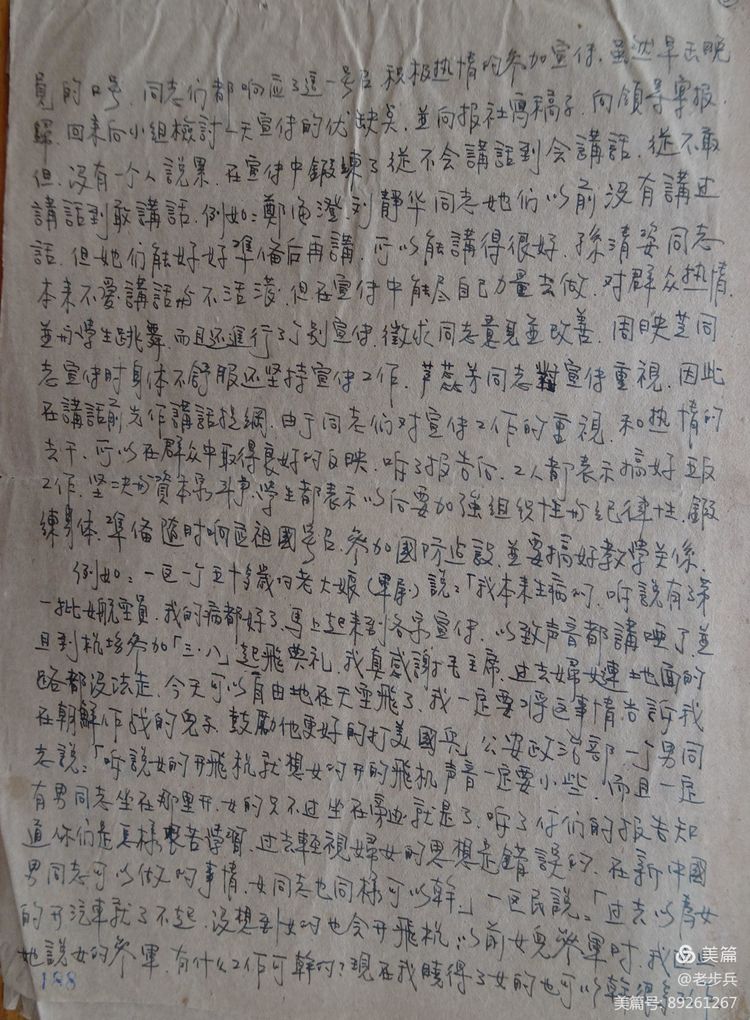 員的口号，同志们都响应了這一号召积极热情的参加宣传，虽然早去晚
歸，回来后小组檢討一天宣传的优缺点，並向报社寫稿子，向領导彙报，
但，没有一个人説累，在宣传中鍛練了從不会講話到会講話，從不敢
講話到敢講話，例如：鄭海澄，刘静华同志她们以前没有講过
話，但她们能好好準備后再講，可以能講得很好，孫清姿同志
本来不爱講話也不活潑，但在宣传中能尽自己力量去做，对群众热情，
並和學生跳舞，而且还進行了个别宣传，徵求同志意見並改善，周映芝同
志宣传时身体不舒服还坚持宣传工作，芦蕊芳同志對宣传重視，因此
在講話前先作講話提綱，由于同志们对宣传工作的重視，和热情的
去干，可以在群众中取得良好的反映，听了报告后，工人都表示搞好五反
工作，坚决和資本家斗争，學生都表示以后要加強组织性和纪律性，鍛
練身体，準備随时响应祖國号召，参加國防建設，並要搞好教學关係，
例如：一区一个五十多歲的老大娘（軍屬）説：「我本来生病的，听説有了第
一批女航空員，我的病都好了，馬上起来到各家宣传，以致声音都講啞了並
且到机塲参加「三·八」起飛典礼，我真感謝毛主席，过去婦女連土地面的
路都没法走，今天可以自由地在天空飛了，我一定要將這事情告訴我
在朝鮮作战的兒子，鼓勵他更好的打美國兵，公安政治部一个男同
志説：「听説女的开飛机就想女的开的飛机声音一定要小些，而且一定
有男同志坐在那里开，女的只不过坐在旁边就是了，听了你们的报告知
道你们是怎樣艰苦學習，过去輕視婦女的思想是錯誤的，在新中國
男同志可以做的事情，女同志也同樣可以幹」一区民説：「过去以爲女
的开汽車就了不起，没想到女的也会开飛机，以前女兒参軍时，我
她説女的参軍，有什么工作可幹的？現在我曉得了女的也可以幹得
188
美篇
@老步兵
美篇号：89261267